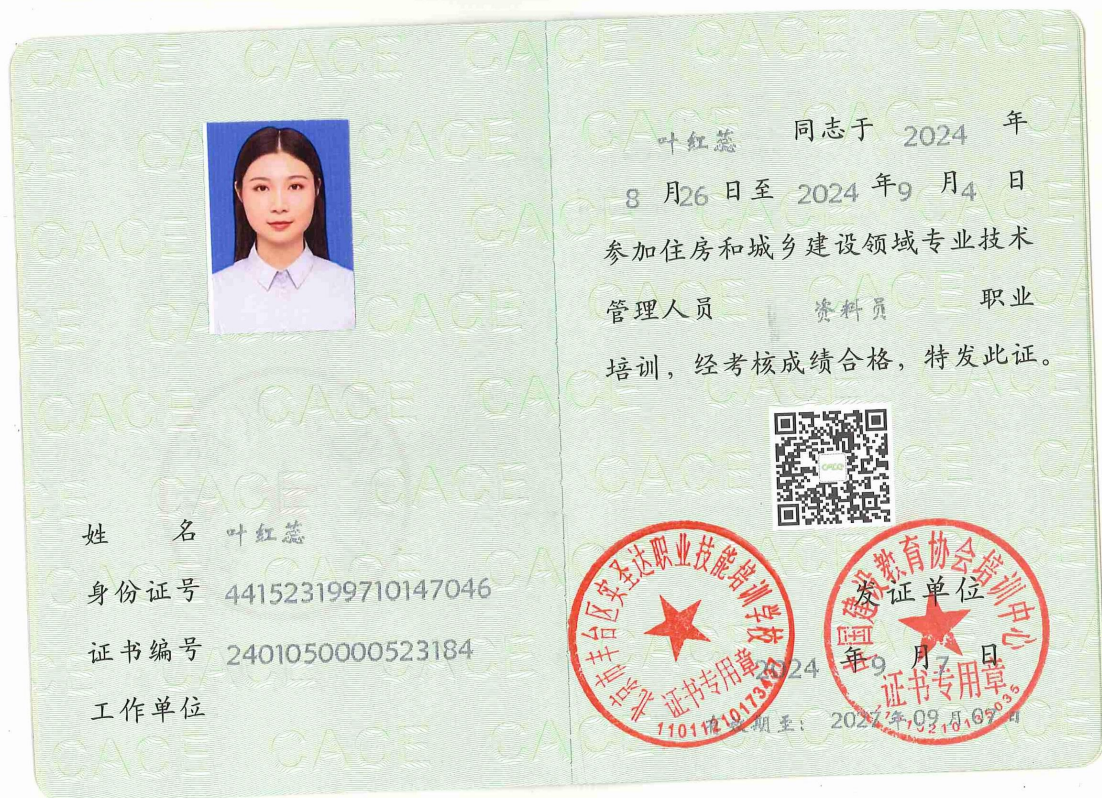 姓 名 叶红蕊
身份证号 441523199710147046
证书编号 2401050000523184
工作单位
叶红蕊 同志于 2024 年
8 月 26 日至 2024 年 9 月 4 日
参加住房和城乡建设领域专业技术
管理人员 资料员 职业
培训，经考核成绩合格，特发此证。
北京市丰台区实圣达职业技能培训学校
证书专用章
中国建设教育协会培训中心
证书专用章
发证单位
2024 年 9 月 7 日
有效期至: 2027 年 09 月 07 日
CACE